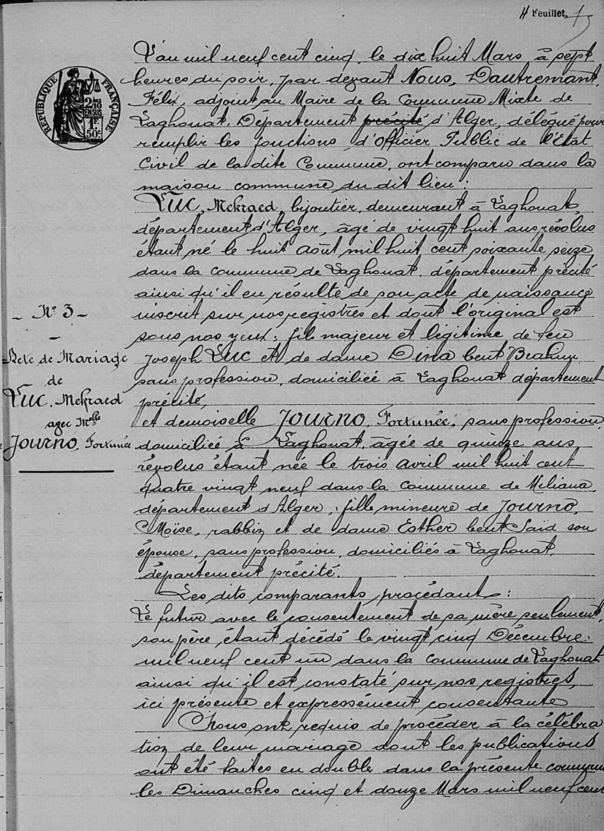 4 Feuillet
L'an mil neuf cent cinq, le dix huit Mars à sept
heures du soir, par devant Nous, Dautremant,
Félix, adjoint au Maire de la Commune Mixte de
Laghouat, Département précité d'Alger, délégué pour
remplir les fonctions d'Officier Public de l'Etat
Civil de la dite Commune, ont comparu dans la
maison commune du dit lieu:
LUC, Mekracd, bijoutier, demeurant à Laghouat
département d'Alger, âgé de vingt huit ans révolus
étant né le huit Août mil huit cent soixante seize
dans la commune de Laghouat, département précité
ainsi qu'il en résulte de son acte de naissance
inscrit sur nos registres et dont l'original est
sous nos yeux; fils majeur et légitime de feu
Joseph LUC et de dame Dina bent Brahim
sans profession, domiciliée à Laghouat département
précité,
et demoiselle JOURNO, Fortunée, sans profession,
domiciliée à Laghouat, âgée de quinze ans
révolus étant née le trois avril mil huit cent
quatre vingt neuf dans la commune de Miliana,
département d'Alger, fille mineure de Journo,
Moïse, rabbin et de dame Esther bent Saïd son
épouse, sans profession, domiciliés à Laghouat,
département précité.
Les dits comparants procédant:
Le futur avec le consentement de sa mère seulement,
son père, étant décédé le vingt cinq Décembre
mil neuf cent un dans la commune de Laghouat
ainsi qu'il est constaté sur nos registres,
ici présente et expressément consentante
Nous ont requis de procéder à la célébra
tion de leur mariage dont les publications
ont été faites en double dans la présente commune
les Dimanches cinq et douze Mars mil neuf cent
N° 3
Acte de Mariage
de
LUC, Mekracd
avec Mlle
JOURNO, Fortunée
REPUBLIQUE FRANÇAISE